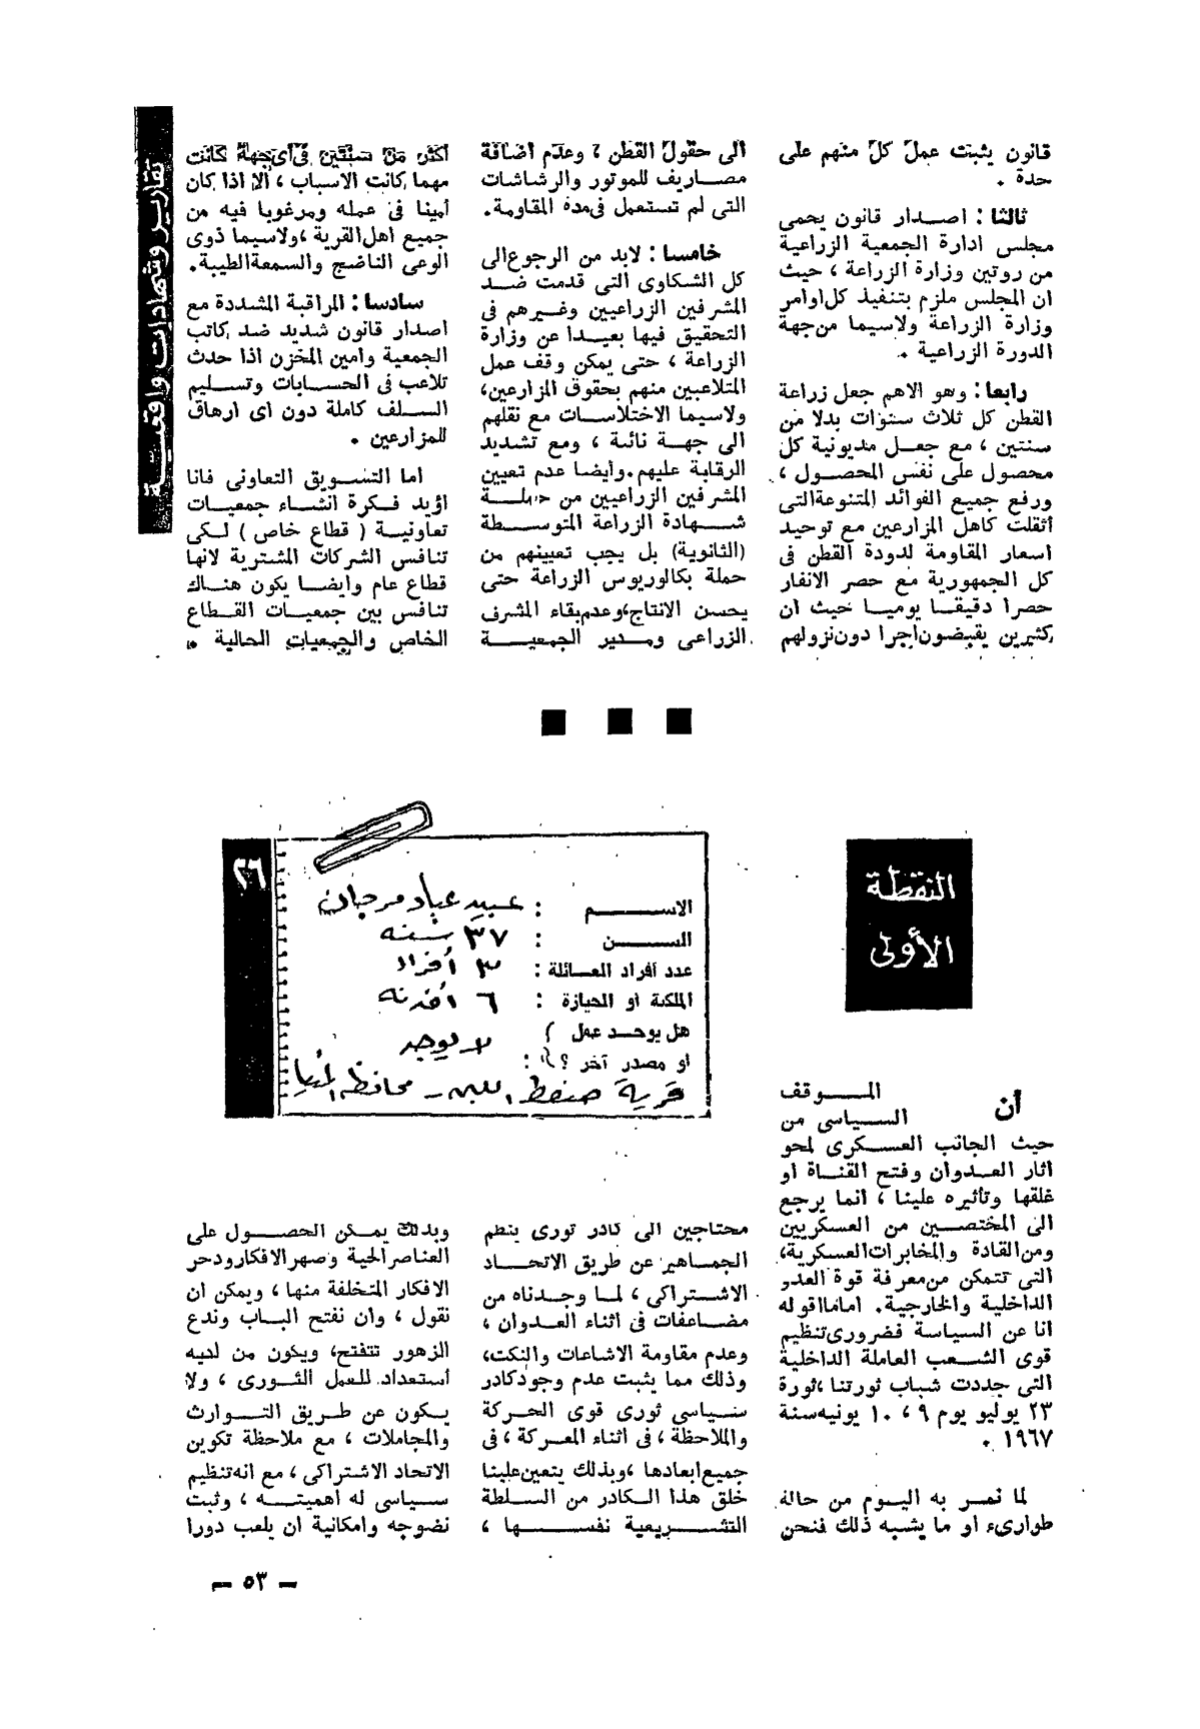 تقارير وشهادات واقعية
قانون يثبت عمل كل منهم على
حدة .
ثالثا : اصدار قانون يحمى
مجلس ادارة الجمعية الزراعية
من روتين وزارة الزراعة ، حيث
ان المجلس ملزم بتنفيذ كل اوامر
وزارة الزراعة ولاسيما من جهة
الدورة الزراعية .
رابعا : وهو الاهم جعل زراعة
القطن كل ثلاث سنوات بدلا من
سنتين ، مع جعل مديونية كل
محصول على نفس المحصول ،
ورفع جميع الفوائد المتنوعة التى
أثقلت كاهل المزارعين مع توحيد
اسعار المقاومة لدودة القطن فى
كل الجمهورية مع حصر الانفار
حصرا دقيقا يوميا حيث ان
كثيرين يقبضون اجرا دون نزولهم
الى حقول القطن ، وعدم اضافة
مصاريف للموتور والرشاشات
التى لم تستعمل فى مدة المقاومة.
خامسا : لابد من الرجوع الى
كل الشكاوى التى قدمت ضد
المشرفين الزراعيين وغيرهم فى
التحقيق فيها بعيدا عن وزارة
الزراعة ، حتى يمكن وقف عمل
المتلاعبين منهم بحقوق المزارعين،
ولاسيما الاختلاسات مع نقلهم
الى جهة نائية ، ومع تشديد
الرقابة عليهم. وايضا عدم تعيين
المشرفين الزراعيين من حملة
شهادة الزراعة المتوسطة
(الثانوية) بل يجب تعيينهم من
حملة بكالوريوس الزراعة حتى
يحسن الانتاج، وعدم بقاء المشرف
الزراعى ومدير الجمعية
أكثر من سنتين فى أى جهة كانت
مهما كانت الاسباب ، ألا اذا كان
أمينا فى عمله ومرغوبا فيه من
جميع اهل القرية ، ولاسيما ذوى
الوعى الناضج والسمعة الطيبة.
سادسا : المراقبة المشددة مع
اصدار قانون شديد ضد كاتب
الجمعية وامين المخزن اذا حدث
تلاعب فى الحسابات وتسليم
السلف كاملة دون اى ارهاق
للمزارعين .
اما التسويق التعاونى فانا
اؤيد فكرة انشاء جمعيات
تعاونية ( قطاع خاص ) لكى
تنافس الشركات المشترية لانها
قطاع عام وايضا يكون هناك
تنافس بين جمعيات القطاع
الخاص والجمعيات الحالية .
النقطة
الأولى
٢٦
الاسم : عبيد عياد مرجان
السن : ٣٧ سنه
عدد أفراد العائلة : ٣ أفراد
الملكية او الحيازة : ٦ أفدنه
هل يوجد عمل )
او مصدر آخر ؟ ) : لا يوجد
قرية صفط اللبن - محافظة المنيا
أن الموقف
السياسى من
حيث الجانب العسكرى لمحو
اثار العدوان وفتح القناة او
غلقها وتأثيره علينا ، انما يرجع
الى المختصين من العسكريين
ومن القادة والمخابرات العسكرية،
التى تتمكن من معرفة قوة العدو
الداخلية والخارجية. اما ما اقوله
انا عن السياسة فضرورى تنظيم
قوى الشعب العاملة الداخلية
التى جددت شباب ثورتنا ، ثورة
٢٣ يوليو يوم ٩ ، ١٠ يونيه سنة
١٩٦٧ .
لما نمر به اليوم من حالة
طوارىء او ما يشبه ذلك فنحن
محتاجين الى كادر ثورى ينظم
الجماهير عن طريق الاتحاد
الاشتراكى ، لما وجدناه من
مضاعفات فى اثناء العدوان ،
وعدم مقاومة الاشاعات والنكت،
وذلك مما يثبت عدم وجود كادر
سياسى ثورى قوى الحركة
والملاحظة ، فى اثناء المعركة ، فى
جميع ابعادها ، وبذلك يتعين علينا
خلق هذا الكادر من السلطة
التشريعية نفسها ،
وبذلك يمكن الحصول على
العناصر الحية وصهر الافكار ودحر
الافكار المتخلفة منها ، ويمكن ان
نقول ، وان نفتح الباب وندع
الزهور تتفتح، ويكون من لديه
أستعداد للعمل الثورى ، ولا
يكون عن طريق التوارث
والمجاملات ، مع ملاحظة تكوين
الاتحاد الاشتراكى ، مع انه تنظيم
سياسى له اهميته ، وثبت
نضوجه وامكانية ان يلعب دورا
— ٥٣ —